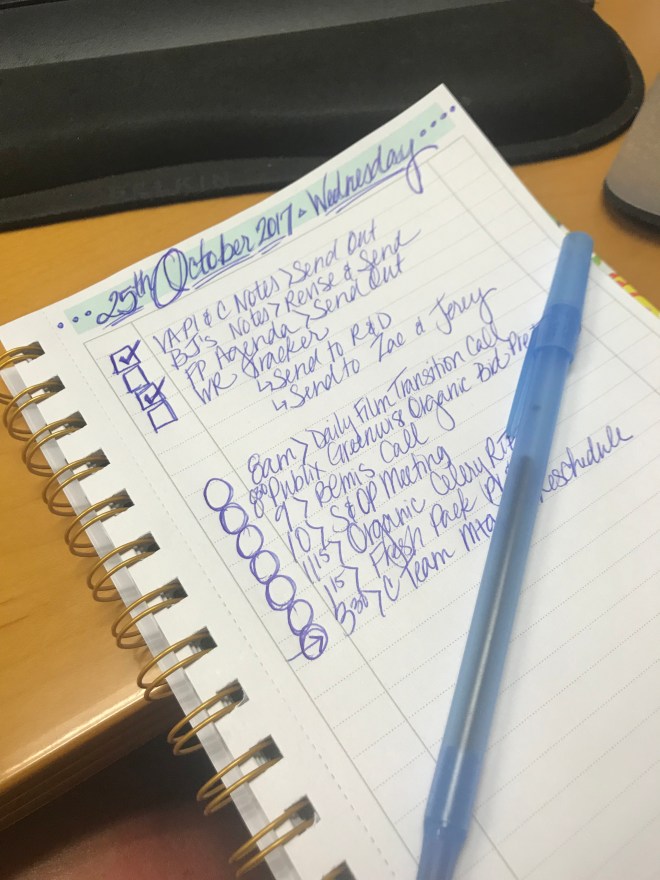 25th October 2017 • Wednesday
VAPI & C Notes > Send Out
BJ's Notes > Revise & Send
FP Agenda > Send Out
WR Tracker
↳ Send to R&D
↳ Send to Zac & Jersy
8am > Daily Film Transition Call
830 Publix Greenwise Organic Bid
9 > Bemis Call
10 > S&OP Meeting
1115 > Organic Celery
115 > Fresh Pack
330 > C Team Mtg Reschedule